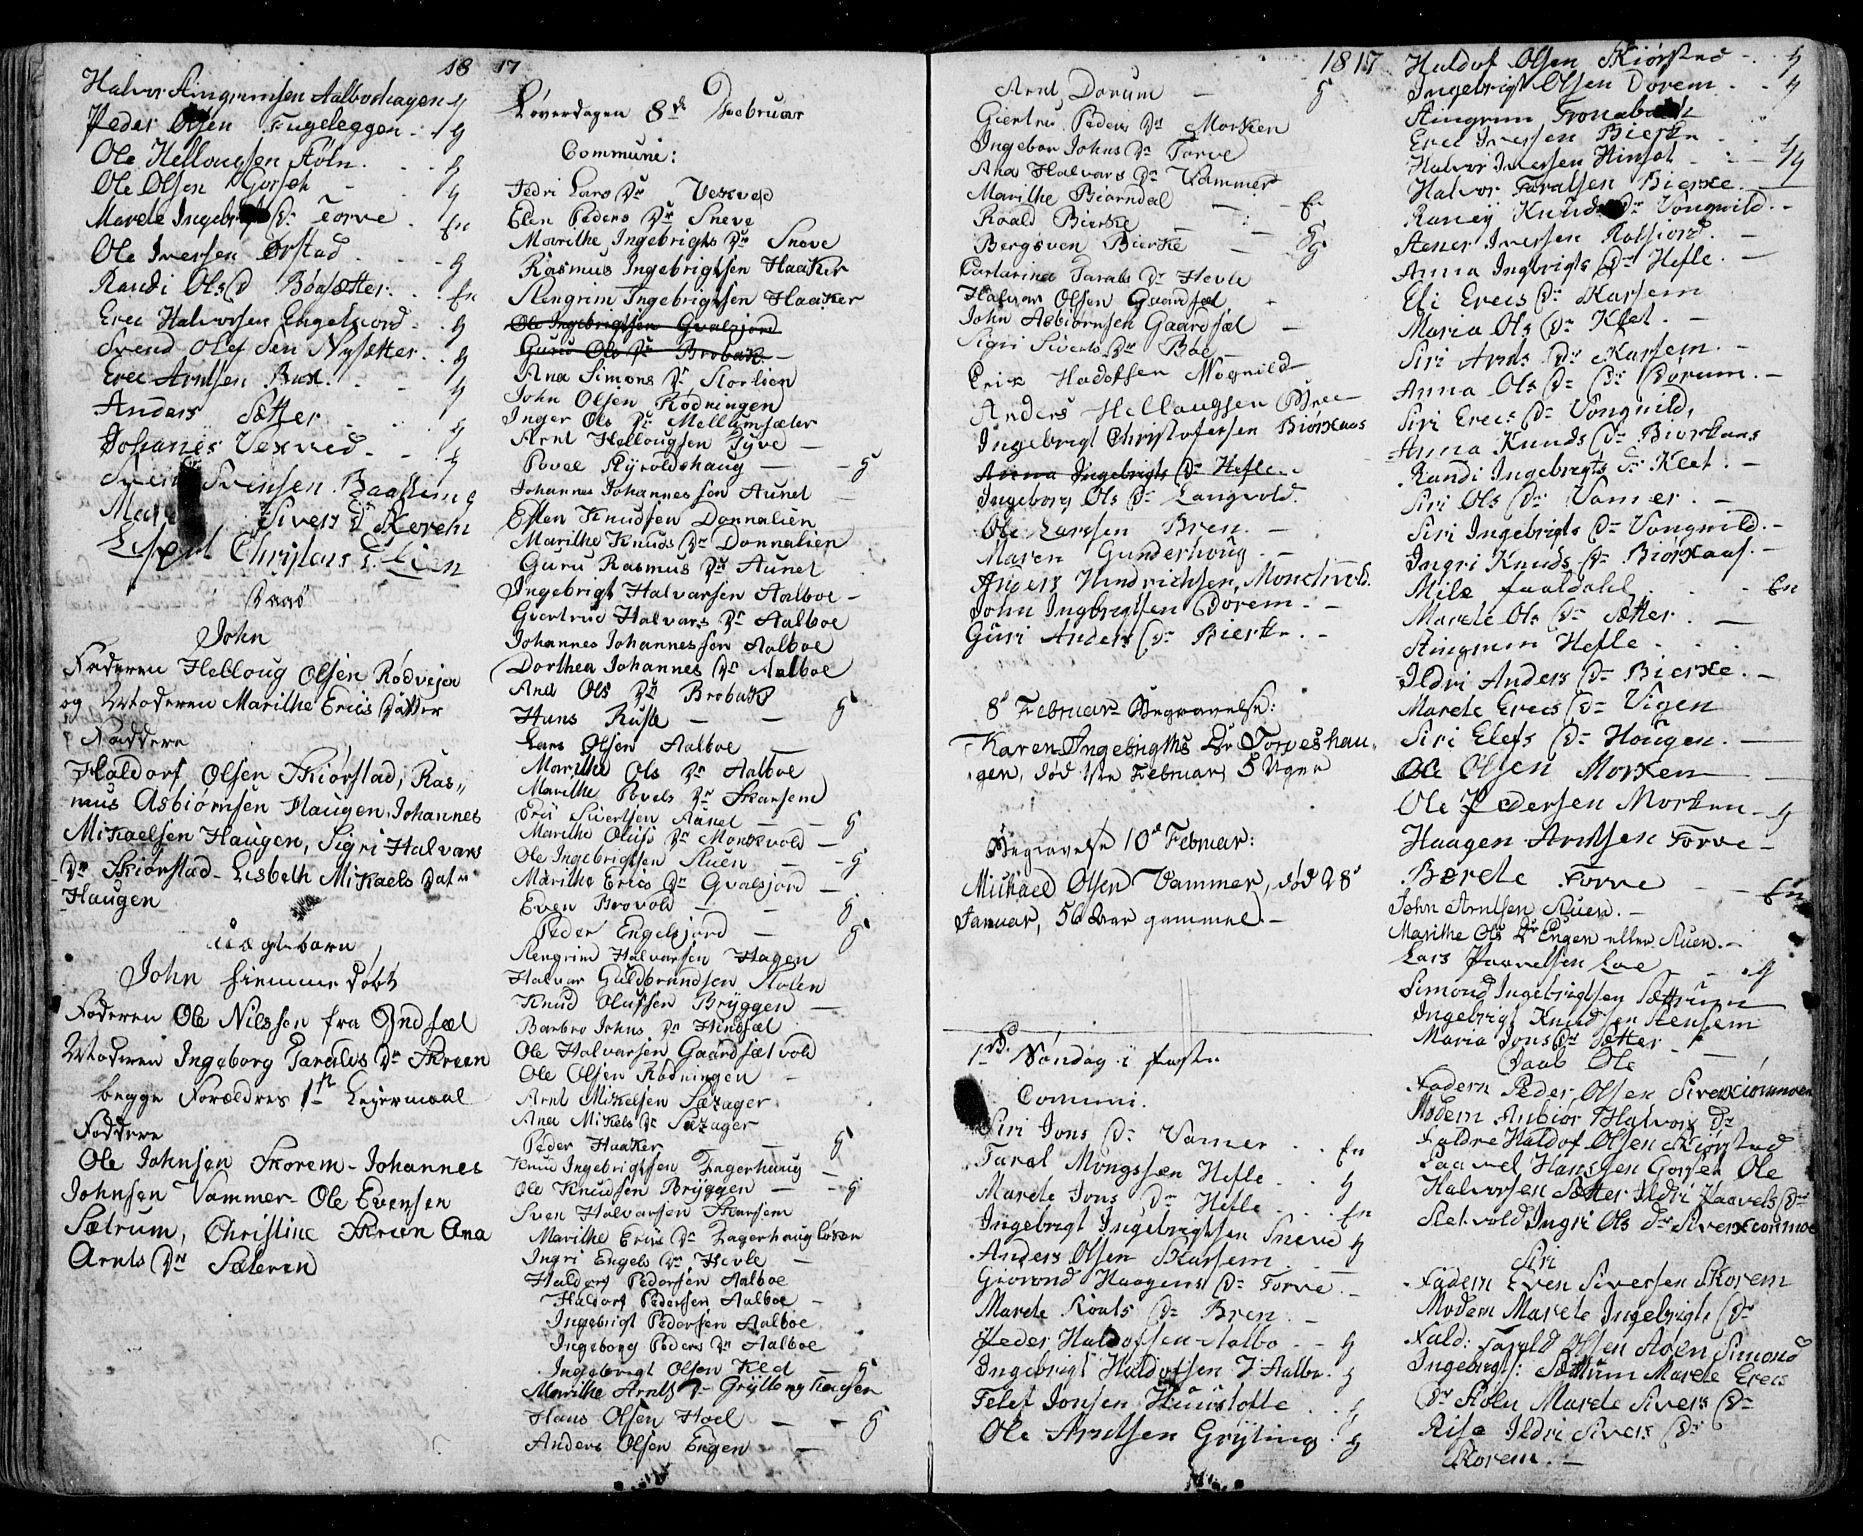 18 17
Halvor Aingrimsen Aalboshagen g
Peder Olsen Fugeleggen g
Ole Hellougsen Køln g
Ole Olsen Gorset g
Marete Ingebr Dr Torve En
Ole Iversen Ørstad g
Randi Ols D Bøasætter En
Erec Halvorsen Engelsiord g
Svend Olef sen Nysætter g
Erec Arntsen Bux g
Anders Sætter g
Johanes Vexved g
Svensen g
Sivers D
Christens D Lien
John
Faderen Helloug Olsen Rødvejen
og Moderen Marithe Erics Datter
Faddere
Haldorf Olsen Skiørstad, Ras„
mus Asbiørnsen Haugen, Johannes
Mikaelsen Haugen, Sigri Halvars
Dr Skiørstad - Lisbeth Mikaels Dat„
Haugen
uægtebarn
John hiemme døbt
Faderen Ole Nilssen fra Indsæt
Moderen Ingeborg Taralds Dr Skreen
begge Foreldres 1ste Leiermaal
Faddere
Ole Johnsen Skorem - Johannes
Johnsen Vammer - Ole Evensen
Sætrum, Christine Skreen Ana
Arnts Dr Sæteren
Løverdagen 8de Februar
Communi:
Sedri Lars Dr Vexved
Elen Peders Dr Sneve
Marithe Ingebrigts Dr Sneve
Rasmus Ingebrigtsen Haaker
Stengrim Ingebrigtsen Haaker
Ole Ingebrigtsen Gvalsjord
Guru Ols Dr Brobak
Ana Simons Dr Storlien
John Olsen Rodningen
Inger Ols Dr Mellumsæter
Arnt Hellougsen Gyve
Povel Skyroldshaug g
Johannes Johannessen Aunet
Esten Knudsen Donnalien
Marithe Knuds Dr Donnalien
Guru Rasmus Dr Aunet
Ingebrigt Halvarsen Aalboe
Giertrud Halvars Dr Aalboe
Johannes Johannessen Aalboe
Dorthea Johannes Dr Aalboe
Ana Ols Dr Brobak
Hans Ruste g
Lars Olsen Aalboe
Marithe Ols Dr Aalboe
Marithe Povels Dr Skarsem
Eric Sivertsen Aunet g
Marithe Olufs Dr Monkvold
Ole Ingebrigtsen Stuen g
Marithe Erics Dr Gvalsjord
Even Brovold g
Peder Engelsjord g
Stengrim Halvarsen Hagen
Halvar Guldbrandsen Stolen
Knud Olufsen Bryggen
Barbro Johns Dr Hindsæt
Ole Halvarsen Gaardsætvold
Ole Olsen Rødningen
Arnt Mikelsen Sæzager
Ana Mikels Dr Sæzager
Peder Haaker g
Knud Ingebrigtsen Fagerhaug
Ole Knudsen Bryggen g
Sven Halvarsen Skarsem
Marithe Erics Dr Fagerhaugløkken
Ingri Engels Dr Hevle
Haldorf Pedersen Aalboe
Haldorf Pedersen Aalboe
Ingebrigt Pedersen Aalboe
Ingeborg Peders Dr Aalboe
Ingebrigt Olsen Klet g
Marithe Arnts Dr Gryttengkaasen
Hans Olsen Hoel g
Anders Olsen Engen
1817
Arnt Dorum g
Giertru Peders Dr Morken
Ingebor Johns Dr Torve
Ana Halvars Dr Vammer
Marithe Biørndal En
Roald Bierke
Bergsven Bierke g
Cartarina Tarals Dr Hevle
Halvar Olsen Gaardsæt
John Asbiørnsen Gaardsæt
Sigri Siverts Dr Boe
Erik Hadofsen Mognild
Anders Hellougsen Bree
Ingebrigt Christofersen Biørkaas
Anna Ingebrigts Dr Hefle
Ingeborg Ols Dr Langvold
Ole Larssen Bren
Maren Gunderhoug
Anders Hendrichsen, Monchvold
John Ingbrigtsen Dorem
Guri Anders Dr Bierke
8de Februar Begravelse:
Karen Ingebrigths Dr Torveshau„
gen, død 1ste Februar, 5 Uger
Begravelse 10de Februar:
Michael Olsen Vammer, død 28de
Januar, 56 Aar gammel
1ste Søndag i faste
Communi.
Siri Jons Dr Vamer En
Taral Mongssen Hefle g
Marete Jons Dr Hefle En
Ingebrigt Ingebrigtsen Sneve g
Anders Olsen Skarsem g
Groeond Haagens Dr Torve
Marete Roals Dr Bren
Peder Haldofsen Aalbo g
Ingebrigt Haldofsen J Aalbo g
Telef Jonsen Huuslotte g
Ole Arntsen Gryting g
Haldof Olsen Skiørsted g
Ingebrigt Olsen Dorem g
Aingrim Tronebakk
Erec Iversen Bierke g
Halvor Iversen Hinset g
Halvor Taralsen Bierke
Raney Knuds Dr Vongvild
Asner Iversen
Anna Ingbrigts Dr Hefle
Eli Erecs Dr Karsem
Maria Ols Dr Klet
Siri Arnts Dr Karsem
Anna Ols Dr Dorum
Siri Erecs Dr Vongvild
Anna Knuds Dr Biorkaas
Randi Ingebrigts Dr Klet
Siri Ols Dr Vamer
Siri Ingebrigts Dr Vongvild
Ingri Knuds Dr Biørkaas
Mile faaldahl En
Marete Ols Dr Sætter
Aingrim Hefle
Ildri Anders Dr Bierke
Marete Erecs Dr Vigen
Siri Elefs Dr Hougen
Ole Olsen Morken
Ole Pedersen Morken g
Haagen Arntsen Torve
Berete Torve En
John Arntsen Stuen
Marithe Ols Dr Engen eller Stuen
Lars Paavelsen Loe g
Simond Ingebrigtsen Sættrum
Ingebrigt Knudsen Stensem
Maria Jons Dr Sætter
Daab Ole
Fadern Peder Olsen Siverkiønmoen
Modern Anbior Halvors Dr
Faldre Haldof Olsen Skiørstad
Paavel Hanssen Gorset Ole
Halvorsen Sætter Ildri Paavels Dr
Sletvold Ingri Ols Dr Siverkiønmoe
Siri
Fadern Even Siversen Skorem
Modern Marete Ingebrigts Dr
Fald: Tarald Olsen Aøen Simond
Ingebrigts: Sættrum Marete Erecs
Dr Stølen Marete Sivers Dr
Rise Ildri Sivers Dr
Skorem